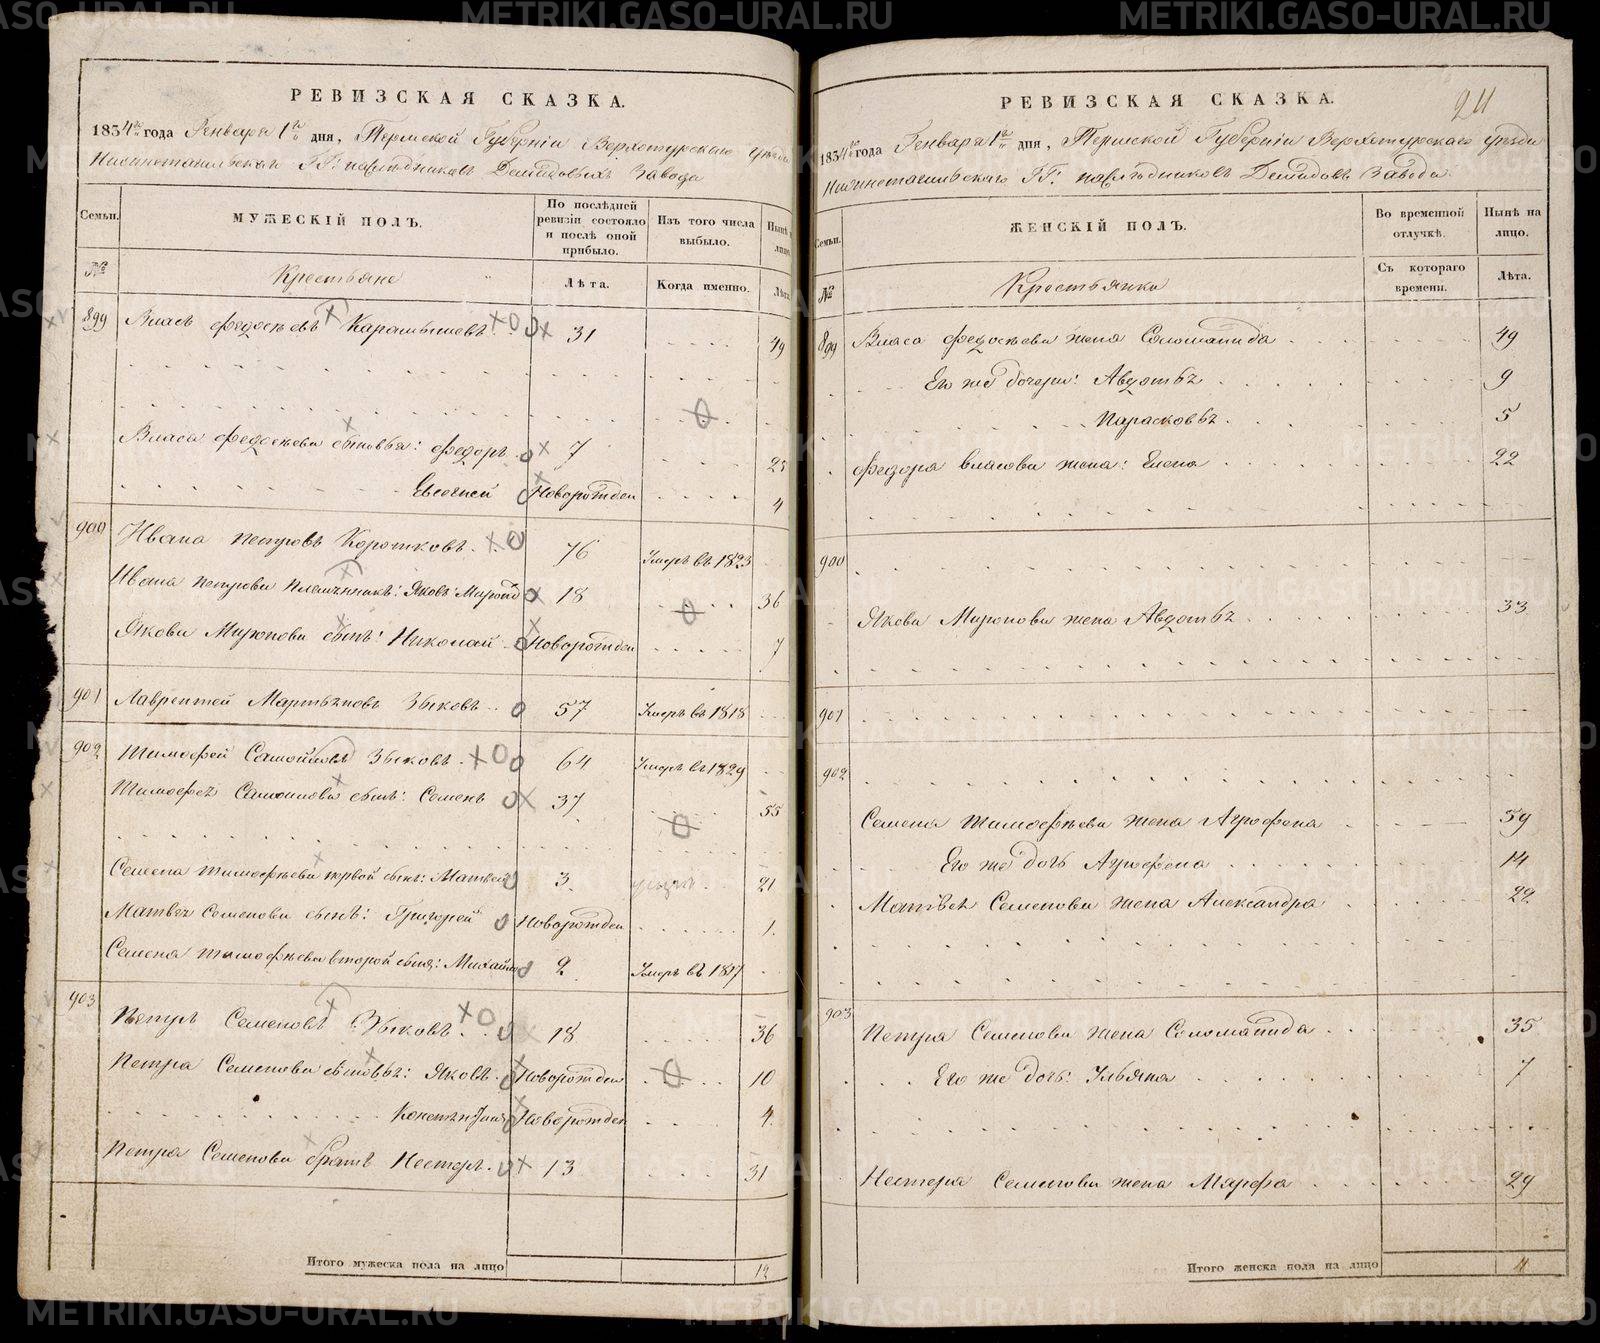 РЕВИЗСКАЯ СКАЗКА.
1834го года Генваря 1го дня, Пермской Губерніи Верхотурскаго уезда
Нижнетагильскаго ГГ: наследниковъ Демидовыхъ Завода
Семьи.
МУЖЕСКІЙ ПОЛЪ.
По послѣдней ревизіи состояло и послѣ оной прибыло.
Изъ того числа выбыло.
Нынѣ на лицо.
№
Крестьяне
Лѣта.
Когда именно.
Лѣта.
899 Власъ Федосѣевъ Карамышевъ 31 49
Власа Федосѣева сыновья: Федоръ 7 25
Евсегней Новорожден 4
900 Ивана Петровъ Коротковъ 76 Умеръ въ 1823
Ивана Петрова племянникъ: Яковъ Миронов 18 36
Якова Миронова сынъ: Николай Новорожден 7
901 Лаврентей Мартьяновъ Зыковъ 57 Умеръ въ 1818
902 Тимофей Самойловъ Зыковъ 64 Умеръ въ 1829
Тимофея Самоилова сынъ: Семенъ 37 55
Семена Тимофѣева первой сынъ: Матвей 3 21
Матвея Семенова сынъ: Григорей Новорожден 1.
Семена Тимофѣева второй сынъ: Михайло 2 Умеръ въ 1817
903 Петръ Семеновъ Зыковъ 18 36
Петра Семенова сыновья: Яковъ Новорожден 10
Констентинъ Новорожден 4.
Петра Семенова братъ Нестеръ 13 31
Итого мужеска пола на лицо 12
РЕВИЗСКАЯ СКАЗКА.
211
1834го года Генваря 1го дня, Пермской Губерніи Верхотурскаго уезда
Нижнетагильскаго ГГ: наследниковъ Демидовъ Завода.
Семьи.
ЖЕНСКІЙ ПОЛЪ.
Во временной отлучкѣ.
Нынѣ на лицо.
№
Крестьянки
Съ котораго времени.
Лѣта.
899 Власа Федосѣева жена Соломанида 49
Его же дочери: Авдотья 9
Парасковья 5
Федора Власова жена: Елена 22
900
Якова Миронова жена Авдотья 33
901
902
Семена Тимофѣева жена Агрофена 59
Его же дочь Агрофена 14
Матвея Семенова жена Александра 22
903 Петра Семенова жена Соломанида 35
Его же дочь: Ульяна 7
Нестера Семенова жена Марфа 29
Итого женска пола на лицо 11
METRIKI.GASO-URAL.RU